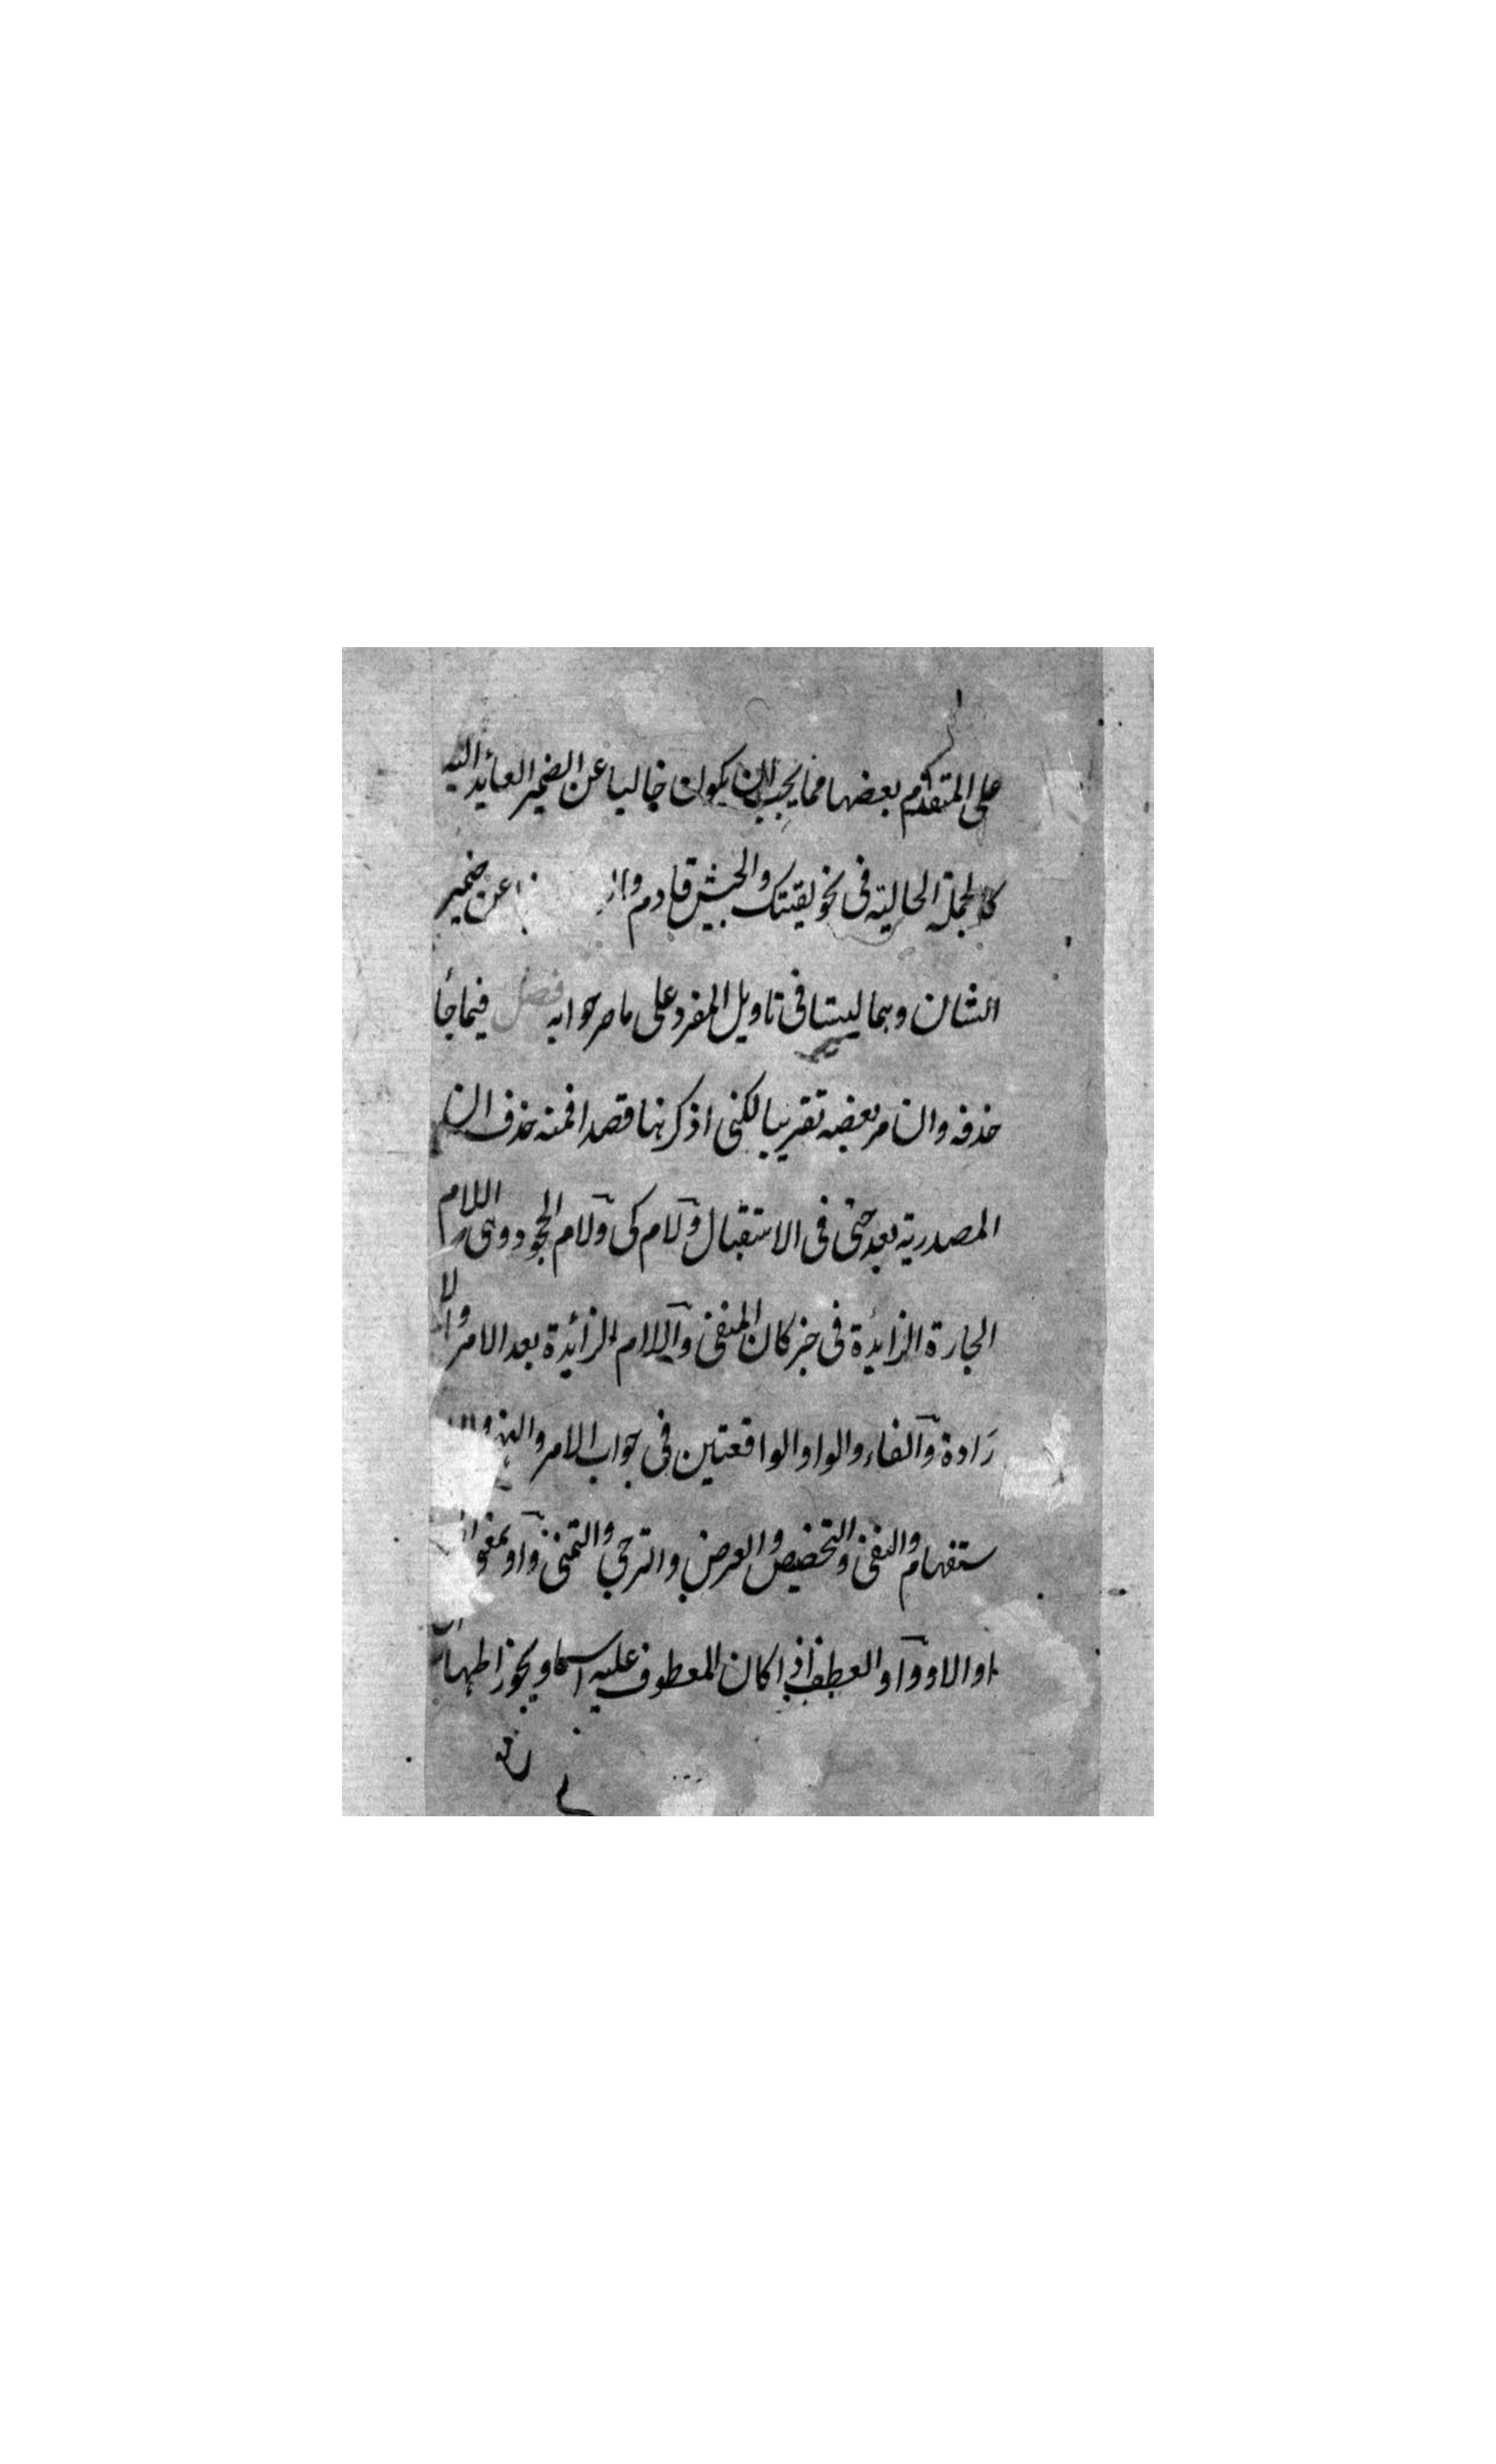 على المتقدم بعضها مما يجب ان يكون خاليا عن الضمير العايد اليه
كالجملة الحالية فى نحو لقيتك والجيش قادم عن ضمير
الشان وهما ليستا فى تاويل المفرد على ما مر جوابه فصل فيما جأ
حذفه وان مر بعضه تقريبا لكنى اذكر هنا قصدا فمنه حذف ان
المصدرية بعد حتى فى الاستقبال ولام كى ولام الجحود وهى اللام
الجارة الزائدة فى خبر كان المنفى واللام الزائدة بعد الامر والا
رادة والفاء والواو الواقعتين فى جواب الامر والنهى
ستفهام والنفى والتحضيض والعرض والترجى والتمنى واو بمعنى
او الا وواو العطف اذا كان المعطوف عليه اسما ويجوز اظهار